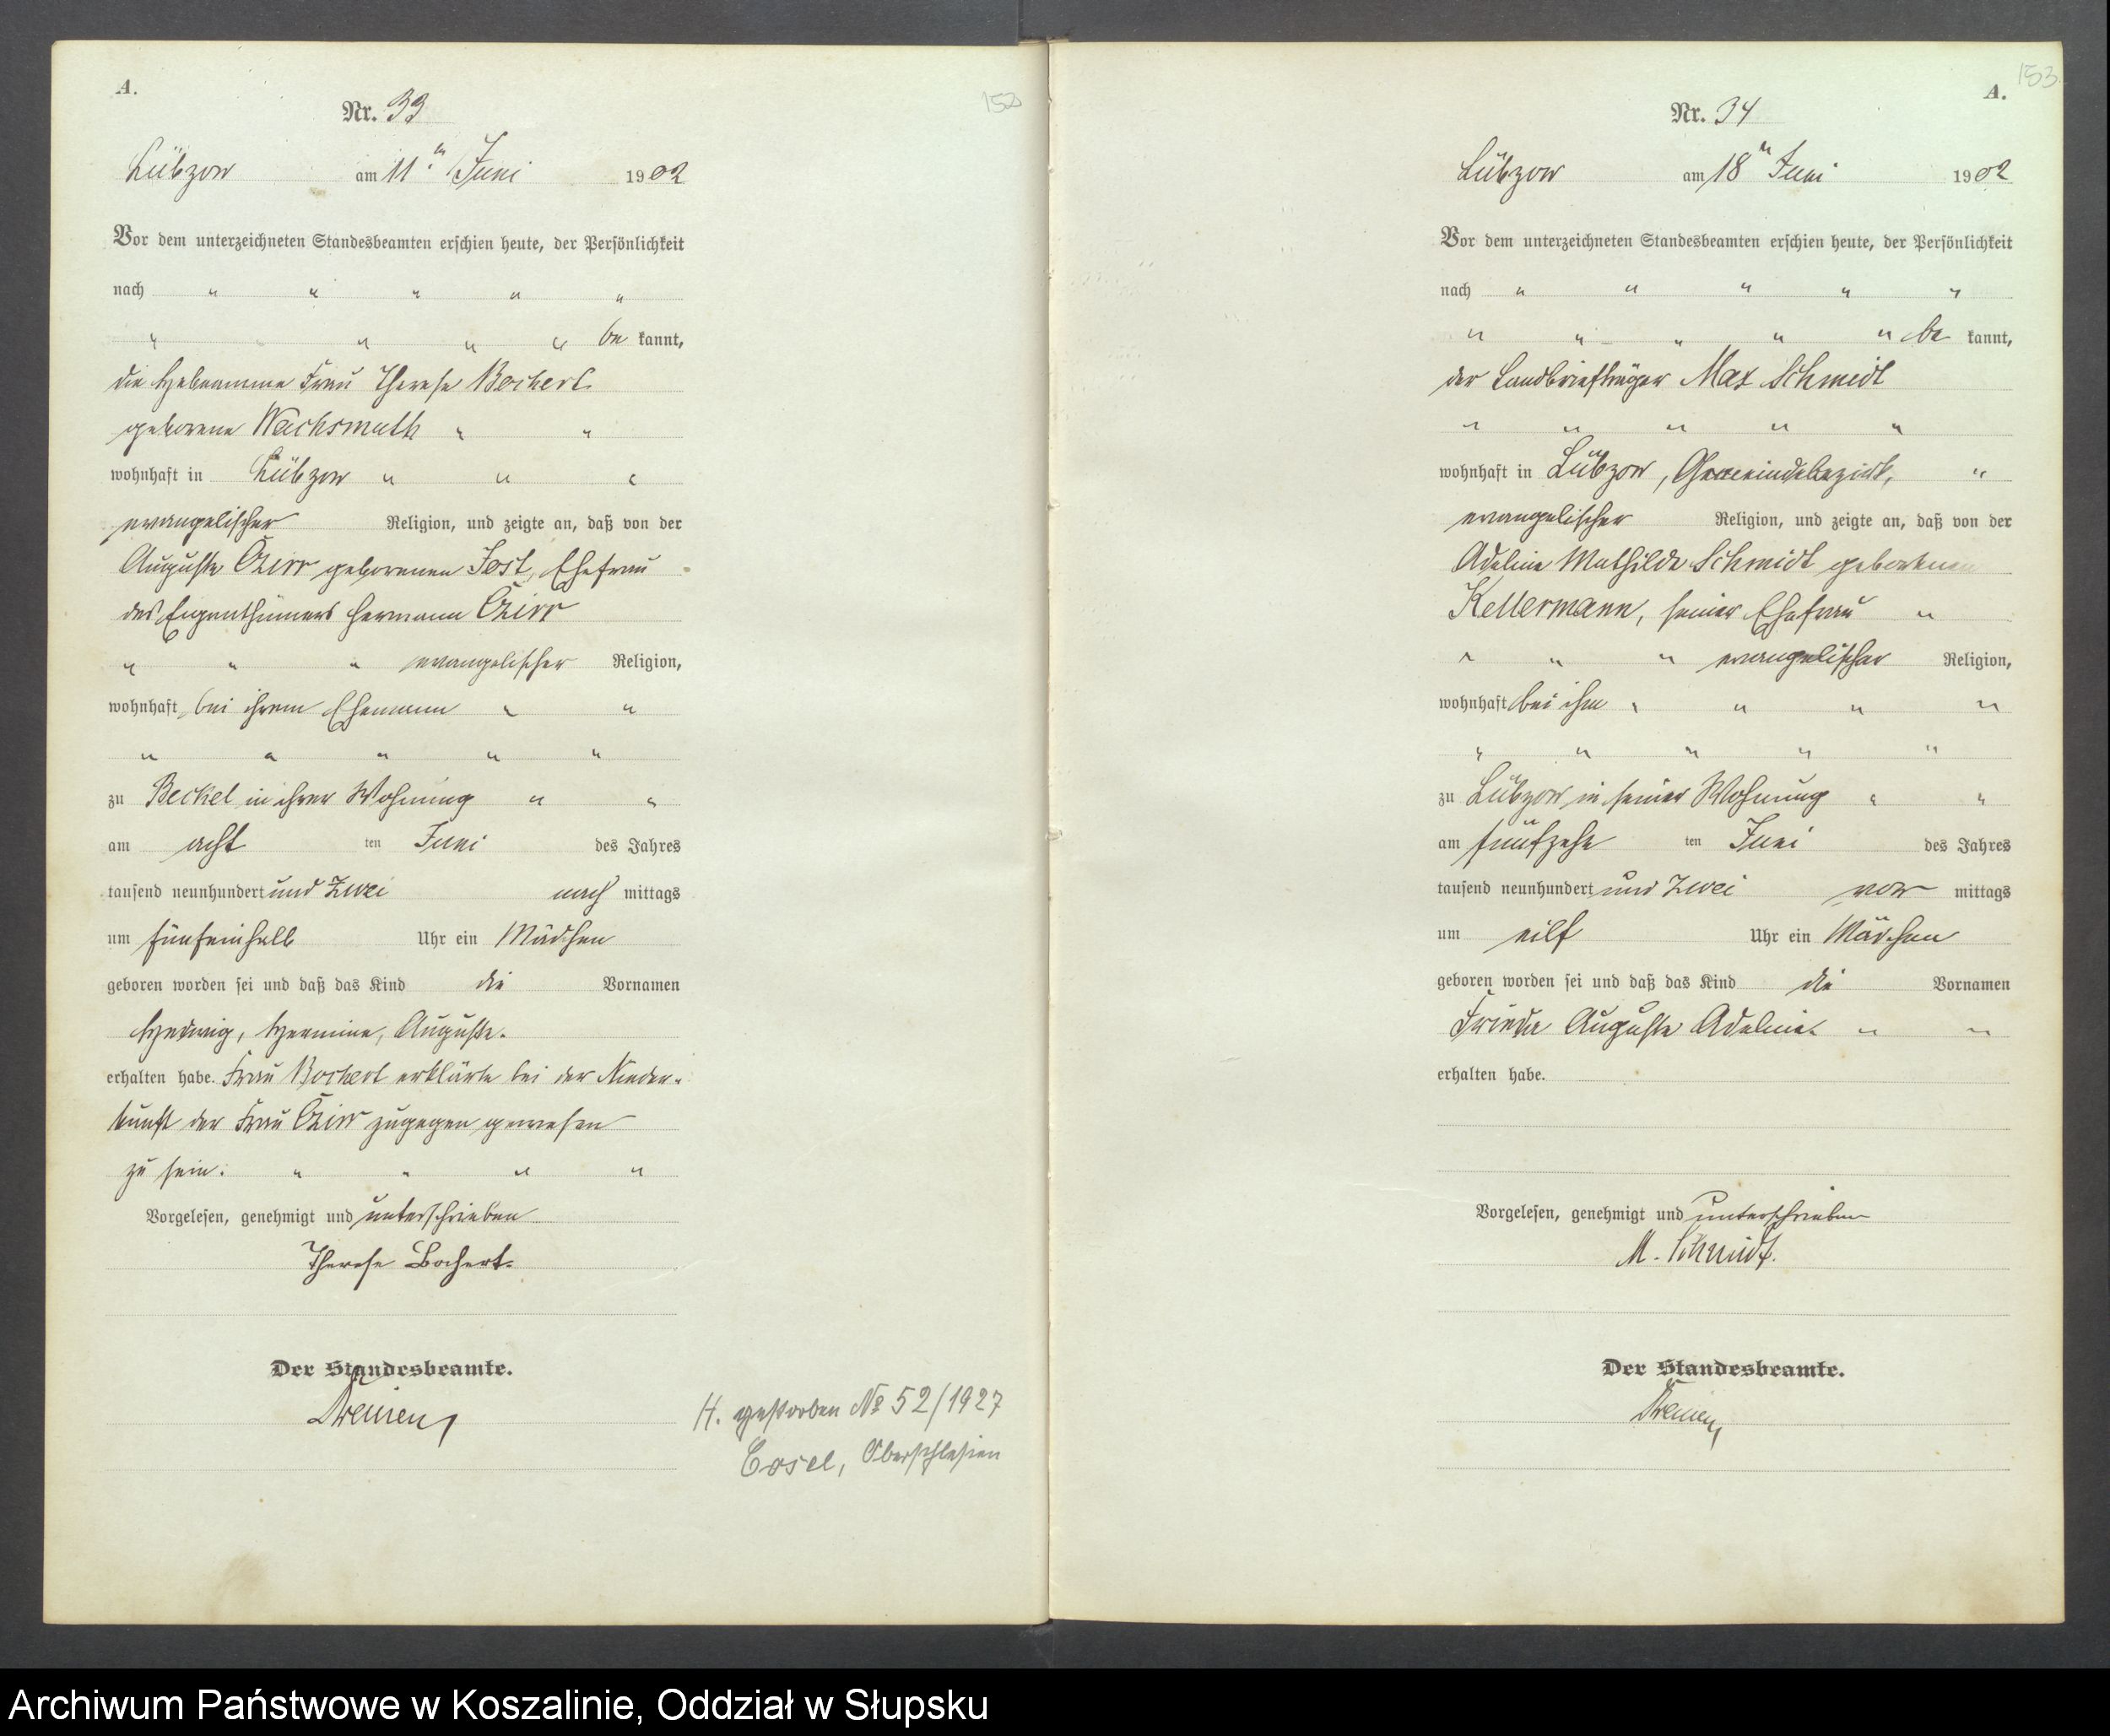 A.
152
Nr. 33
Lübzow am 11ten Juni 1902
Vor dem unterzeichneten Standesbeamten erschien heute, der Persönlichkeit
nach " " " " "
" " " " be kannt,
die Hebeamme Frau Therese Bochert
geborene Wachsmuth " "
wohnhaft in Lübzow " " "
evangelischer Religion, und zeigte an, daß von der
Auguste Czirr geborenen Jost, Ehefrau
des Eigenthümers Hermann Czirr
" " " evangelischer Religion,
wohnhaft bei ihrem Ehemann " "
" " " " "
zu Beckel in ihrer Wohnung " "
am acht ten Juni des Jahres
tausend neunhundert und zwei nach mittags
um fünfeinhalb Uhr ein Mädchen
geboren worden sei und daß das Kind die Vornamen
Hedwig, Hermine, Auguste.
erhalten habe. Frau Bochert erklärte bei der Nieder-
kunft der Frau Czirr zugegen gewesen
zu sein. " " " "
Vorgelesen, genehmigt und unterschrieben
Therese Bochert.
Der Standesbeamte.
H. gestorben № 52/1927
Cosel, Oberschlesien
153
A.
Nr. 34
Lübzow am 18n Juni 1902
Vor dem unterzeichneten Standesbeamten erschien heute, der Persönlichkeit
nach " " " " "
" " " " " be kannt,
der Landbriefträger Max Schmidt
" " " " "
wohnhaft in Lübzow, Gemeindebezirk, "
evangelischer Religion, und zeigte an, daß von der
Adeline Mathilde Schmidt geborenen
Kellermann, seiner Ehefrau "
" " " evangelischer Religion,
wohnhaft bei ihm " " " "
" " " " "
zu Lübzow in seiner Wohnung " "
am fünfzehn ten Juni des Jahres
tausend neunhundert und zwei vor mittags
um eilf Uhr ein Mädchen
geboren worden sei und daß das Kind die Vornamen
Frieda Auguste Adeline " "
erhalten habe.
Vorgelesen, genehmigt und unterschrieben
M. Schmidt.
Der Standesbeamte.
Archiwum Państwowe w Koszalinie, Oddział w Słupsku